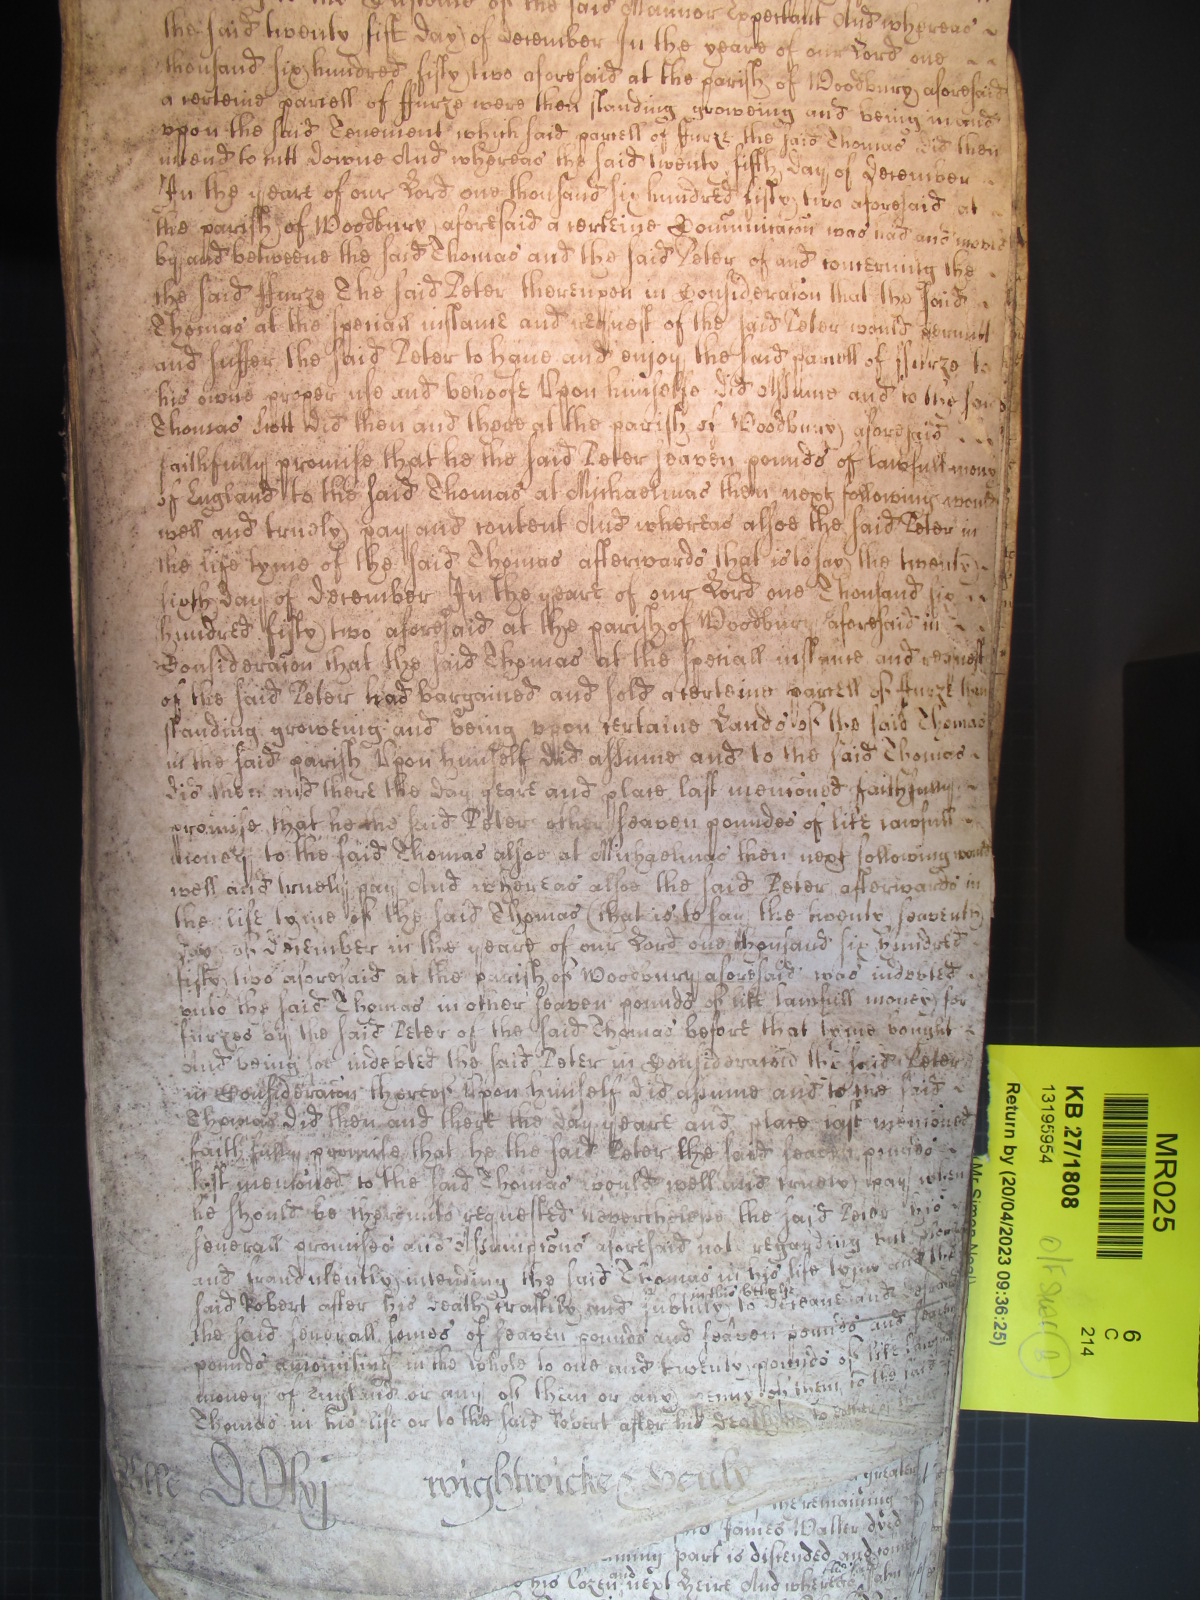 to the Custome of the said Mannor Expectant And whereas
the said twenty fift day of December In the yeare of our Lord one
thousand six hundred fifty two aforesaid at the parish of Woodbury aforesaid
a certeine parcell of ffurze were then standing groweing and being in and
vpon the said Tenement which said parcell of ffurze the said Thomas did then
intend to cutt downe And whereas the said twenty fifth day of December
In the yeare of our Lord one thousand six hundred fifty two aforesaid at
the parish of Woodbury aforesaid a certeine Communicacon was had and moved
by and betweene the said Thomas and the said Peter of and concerning the
the said ffurze The said Peter therevpon in Consideracon that the said
Thomas at the speciall instance and request of the said Peter would permitt
and suffer the said Peter to haue and enjoy the said parcell of ffurze to
his owne proper vse and behoofe Vpon himselfe did Assume and to the said
Thomas Scott did then and there at the parish of Woodbury aforesaid
faithfully promise that he the said Peter seaven pounds of lawfull mony
of England to the said Thomas at Michaelmas then next following would
well and truely pay and content And whereas alsoe the said Peter in
the life tyme of the said Thomas afterwards that is to say the twenty
sixth day of December In the yeare of our Lord one Thousand six
hundred fifty two aforesaid at the parish of Woodbury aforesaid in
Consideracon that the said Thomas at the speciall instance and request
of the said Peter had bargained and sold a certeine parcell of ffurze then
standing groweing and being vpon certaine Lands of the said Thomas
in the said parish Vpon himself did assume and to the said Thomas
did then and there the day yeare and place last mencioned faithfully
promise that he the said Peter other seaven poundes of like lawfull
money to the said Thomas alsoe at Michaelmas then next following would
well and truely pay And whereas alsoe the said Peter afterwards in
the life tyme of the said Thomas (that is to say the twenty seaventh
day of December in the yeare of our Lord one thousand six hundred
fifty two aforesaid at the parish of Woodbury aforesaid was indebted
vnto the said Thomas in other seaven pounds of like lawfull money for
furzes by the said Peter of the said Thomas before that tyme bought
and being soe indebted the said Peter in Consideracon the said Peter
in Consideracon thereof Vpon himself did assume and to the said
Thomas did then and there the day yeare and place last mencioned
faithfully promise that he the said Peter the said seaven pounds
last mencioned to the said Thomas would well and truely pay when
he should be therevnto requested Neverthelesse the said Peter his
severall promises and Assumpcons aforesaid not regarding but
and fraudulently intending the said Thomas in his life tyme and the
said Robert after his death craftily and subtilly in this behalfe to deceaue and defraud
the said severall somes of seaven pounds and seaven pounds and seaven
pounds amounting in the whole to one and twenty pounds of like lawfull
money of England or any of them or any penny of them to the said
Thomas in his life or to the said Robert after his death
wightwicke
greater
the remaining
James Walter dyed
part is discended and
his Cozen and next heire And whereas
MR025
6
C
214
KB 27/1808
13195954
Return by (20/04/2023 09:36:25)